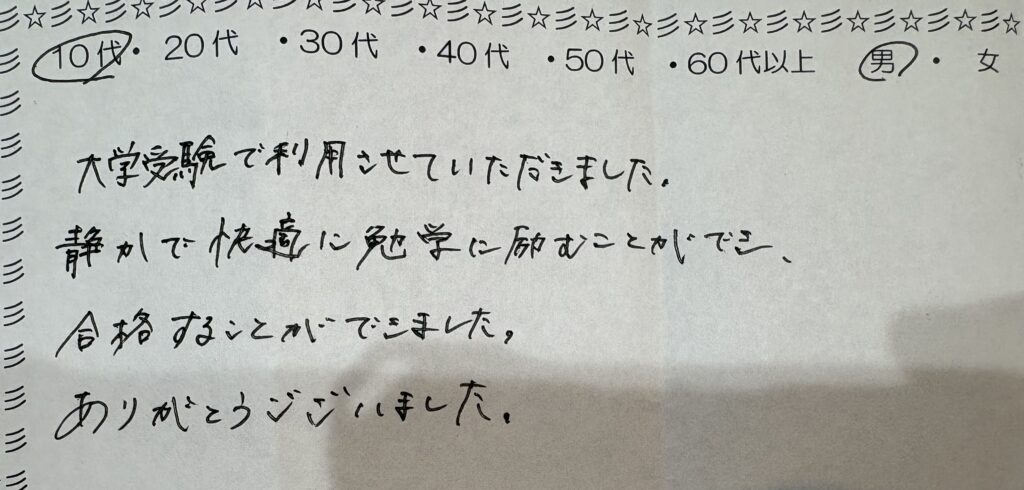 10代・ 20代 ・30代 ・40代 ・50代 ・60代以上 男 ・ 女
大学受験で利用させていただきました。
静かで快適に勉学に励むことができ、
合格することができました。
ありがとうございました。